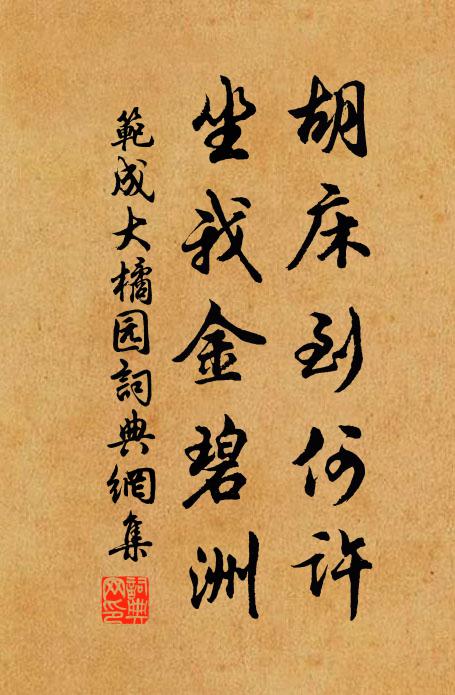 胡床到何许
坐我金碧洲
範成大橘园詞典網集
詞典網印